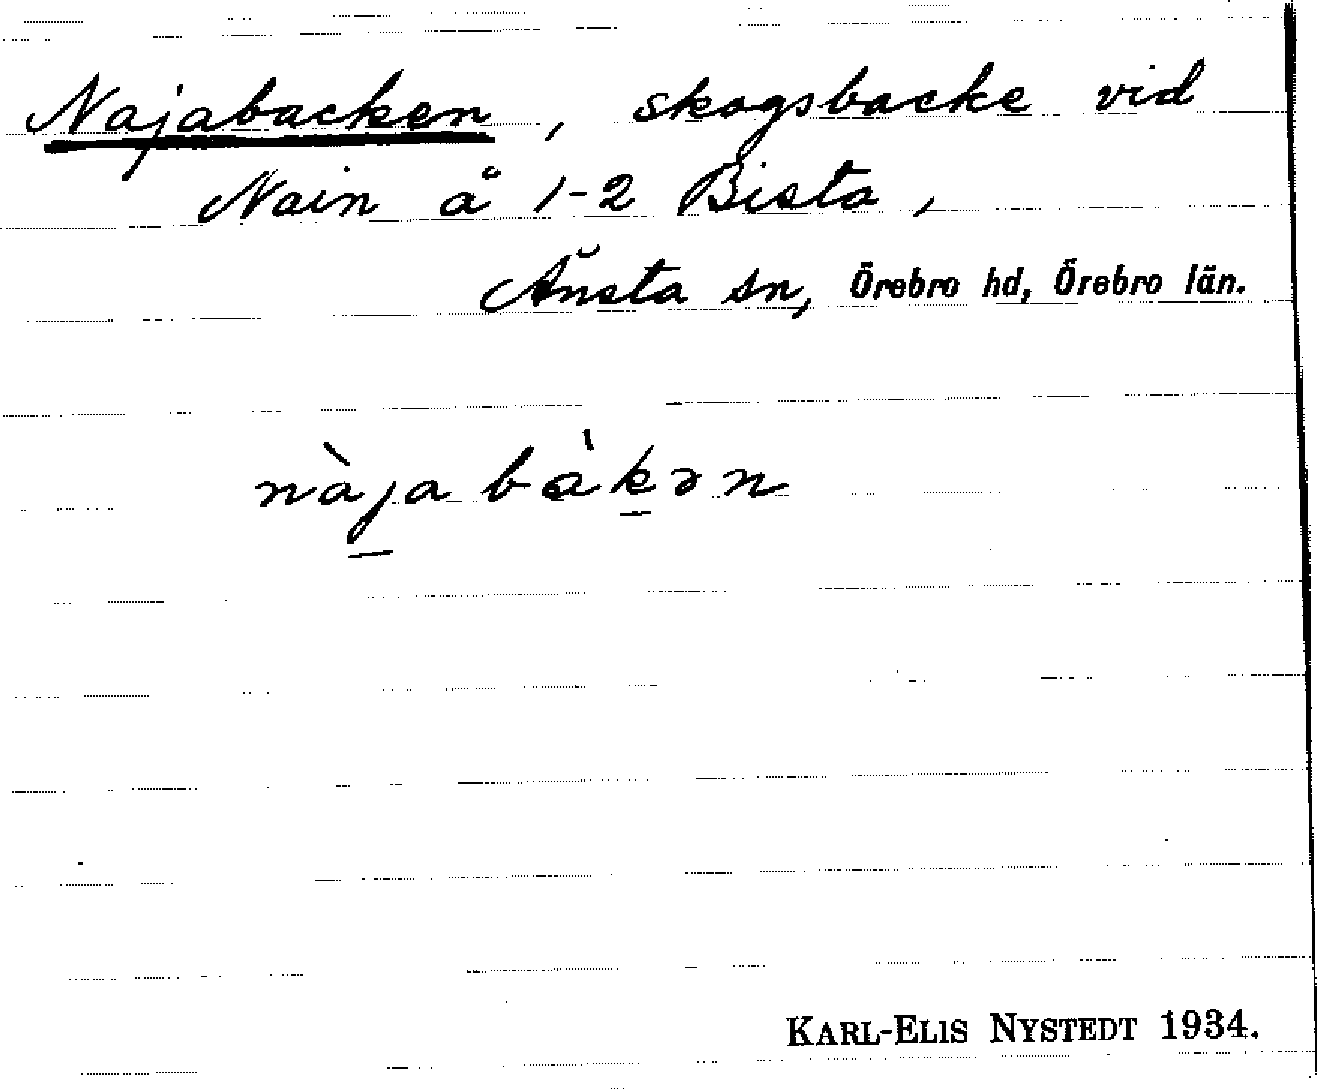 Najabacken, skogsbacke vid
Nain å 1-2 Bista,
Ånsta sn, Örebro hd, Örebro län.
nàjabàkən
KARL-ELIS NYSTEDT 1934.